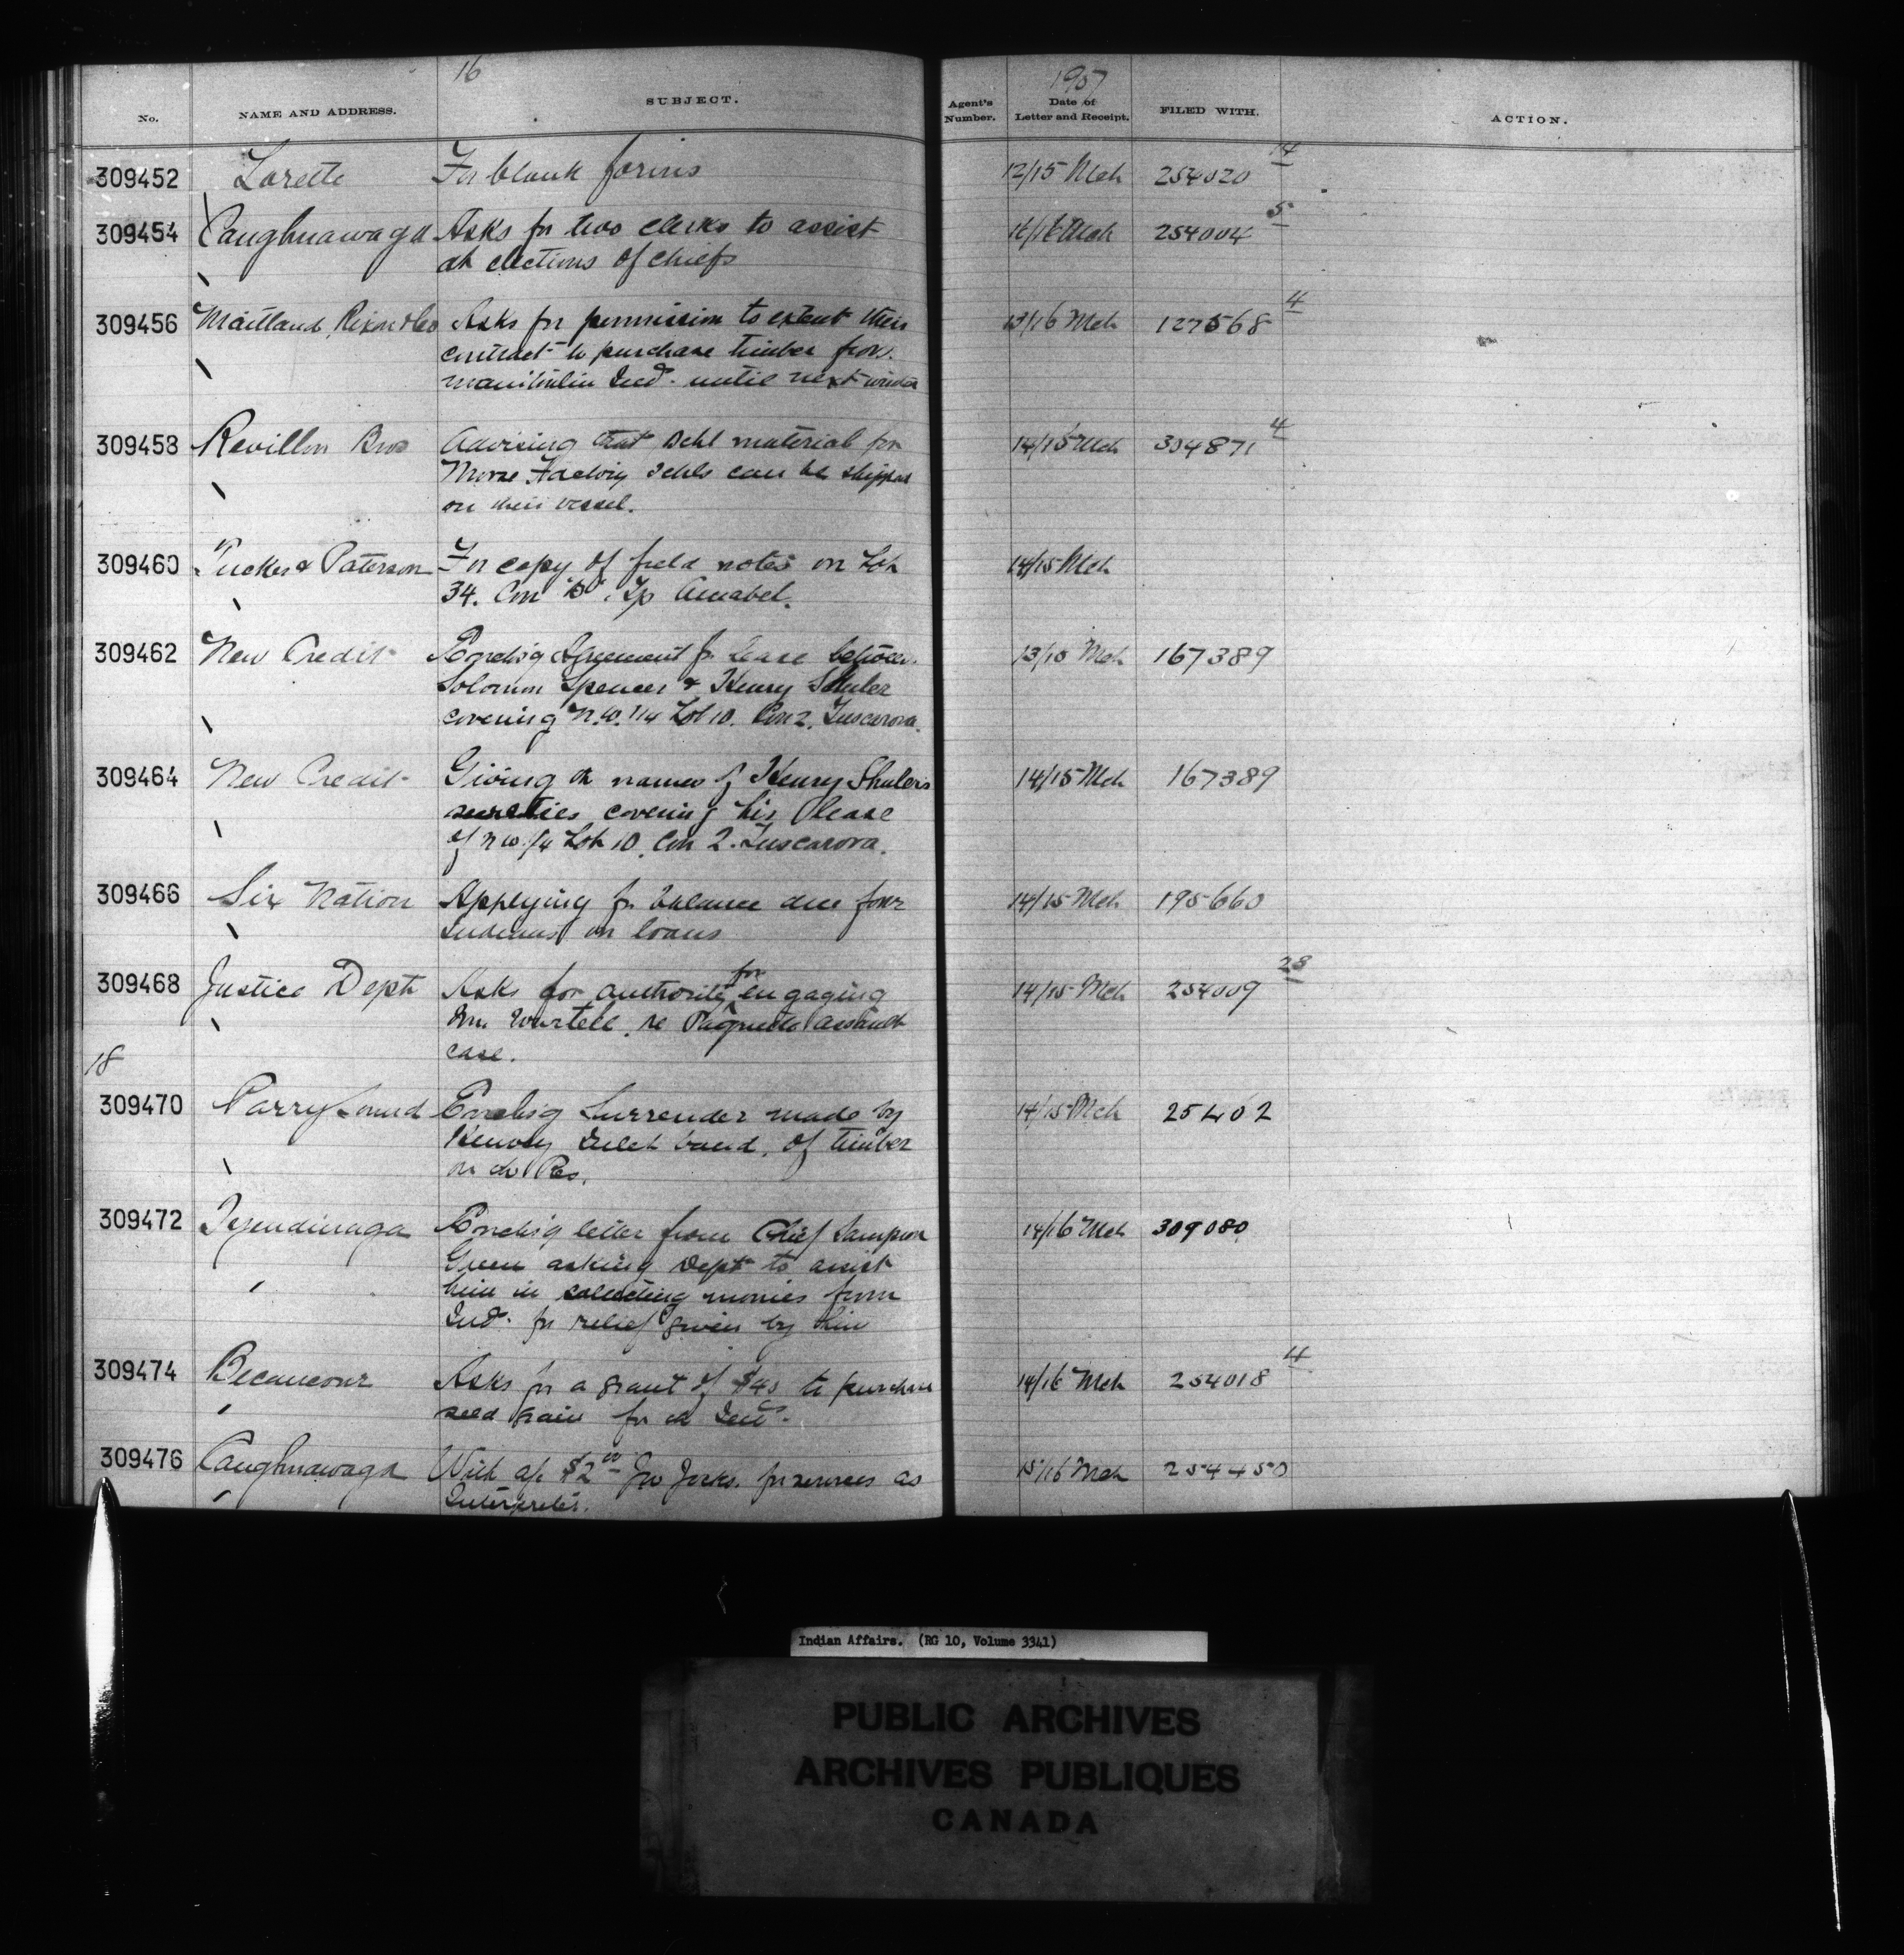 16
1907
No. NAME AND ADDRESS. SUBJECT. Agent's Number. Date of Letter and Receipt. FILED WITH. ACTION.
309452 Lorette For blank forms 12/15 Mch 254020 14
309454 Caughnawaga Asks for two clerks to assist 16 Mch 254004 5
at elections of chiefs
309456 Maitland Rixon & Co Asks for permission to extent their 13/16 Mch 127568 4
contract to purchase timber from
Manitoulin Inds. until next winter
309458 Revillon Bros Advising that schl material for 14/15 Mch 304871 4
Moose Factory schls can be shipped
on their vessel.
309460 Tucker & Paterson For copy of field notes on Lot 14/15 Mch
34. Con "D". Tp Amabel.
309462 New Credit Forwdig Agreement for lease between 13/15 Mch 167389
Solomon Spencer & Henry Shuler
covering N.W. 1/4 Lot 10. Con 2. Tuscarora.
309464 New Credit Giving the names of Henry Shuler's 14/15 Mch 167389
sureties covering his lease
of N W 1/4 Lot 10. Con 2. Tuscarora.
309466 Six Nation Applying for balance due four 14/15 Mch 195660
Indians on loans
309468 Justice Dept Asks for authority for engaging 14/15 Mch 254009 28
Mr. Wurtell, re Paquette assault
case.
18
309470 Parry Sound Forwdig Surrender made by 14/15 Mch 25402
Henvey Inlet band, of timber
on the Res.
309472 Tyendinaga Forwdig letter from Chief Sampson 14/16 Mch 309080
Green asking Dept to assist
him in collecting monies from
Inds. for relief given by him
309474 Becancour Asks for a grant of $40 to purchase 14/16 Mch 254018 14
seed grain for the Inds.
309476 Caughnawaga With a/c $2.00 Jno Jocks. for services as 15/16 Mch 254450
Interpreter.
Indian Affairs. (RG 10, Volume 3341)
PUBLIC ARCHIVES
ARCHIVES PUBLIQUES
CANADA